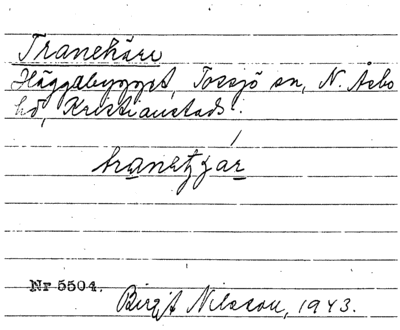 Tranekärr
Häggabygget, Tossjö sn, N. Åsbo
hd, Kristianstads.
Nr 5504.
Birgit Nilsson, 1943.